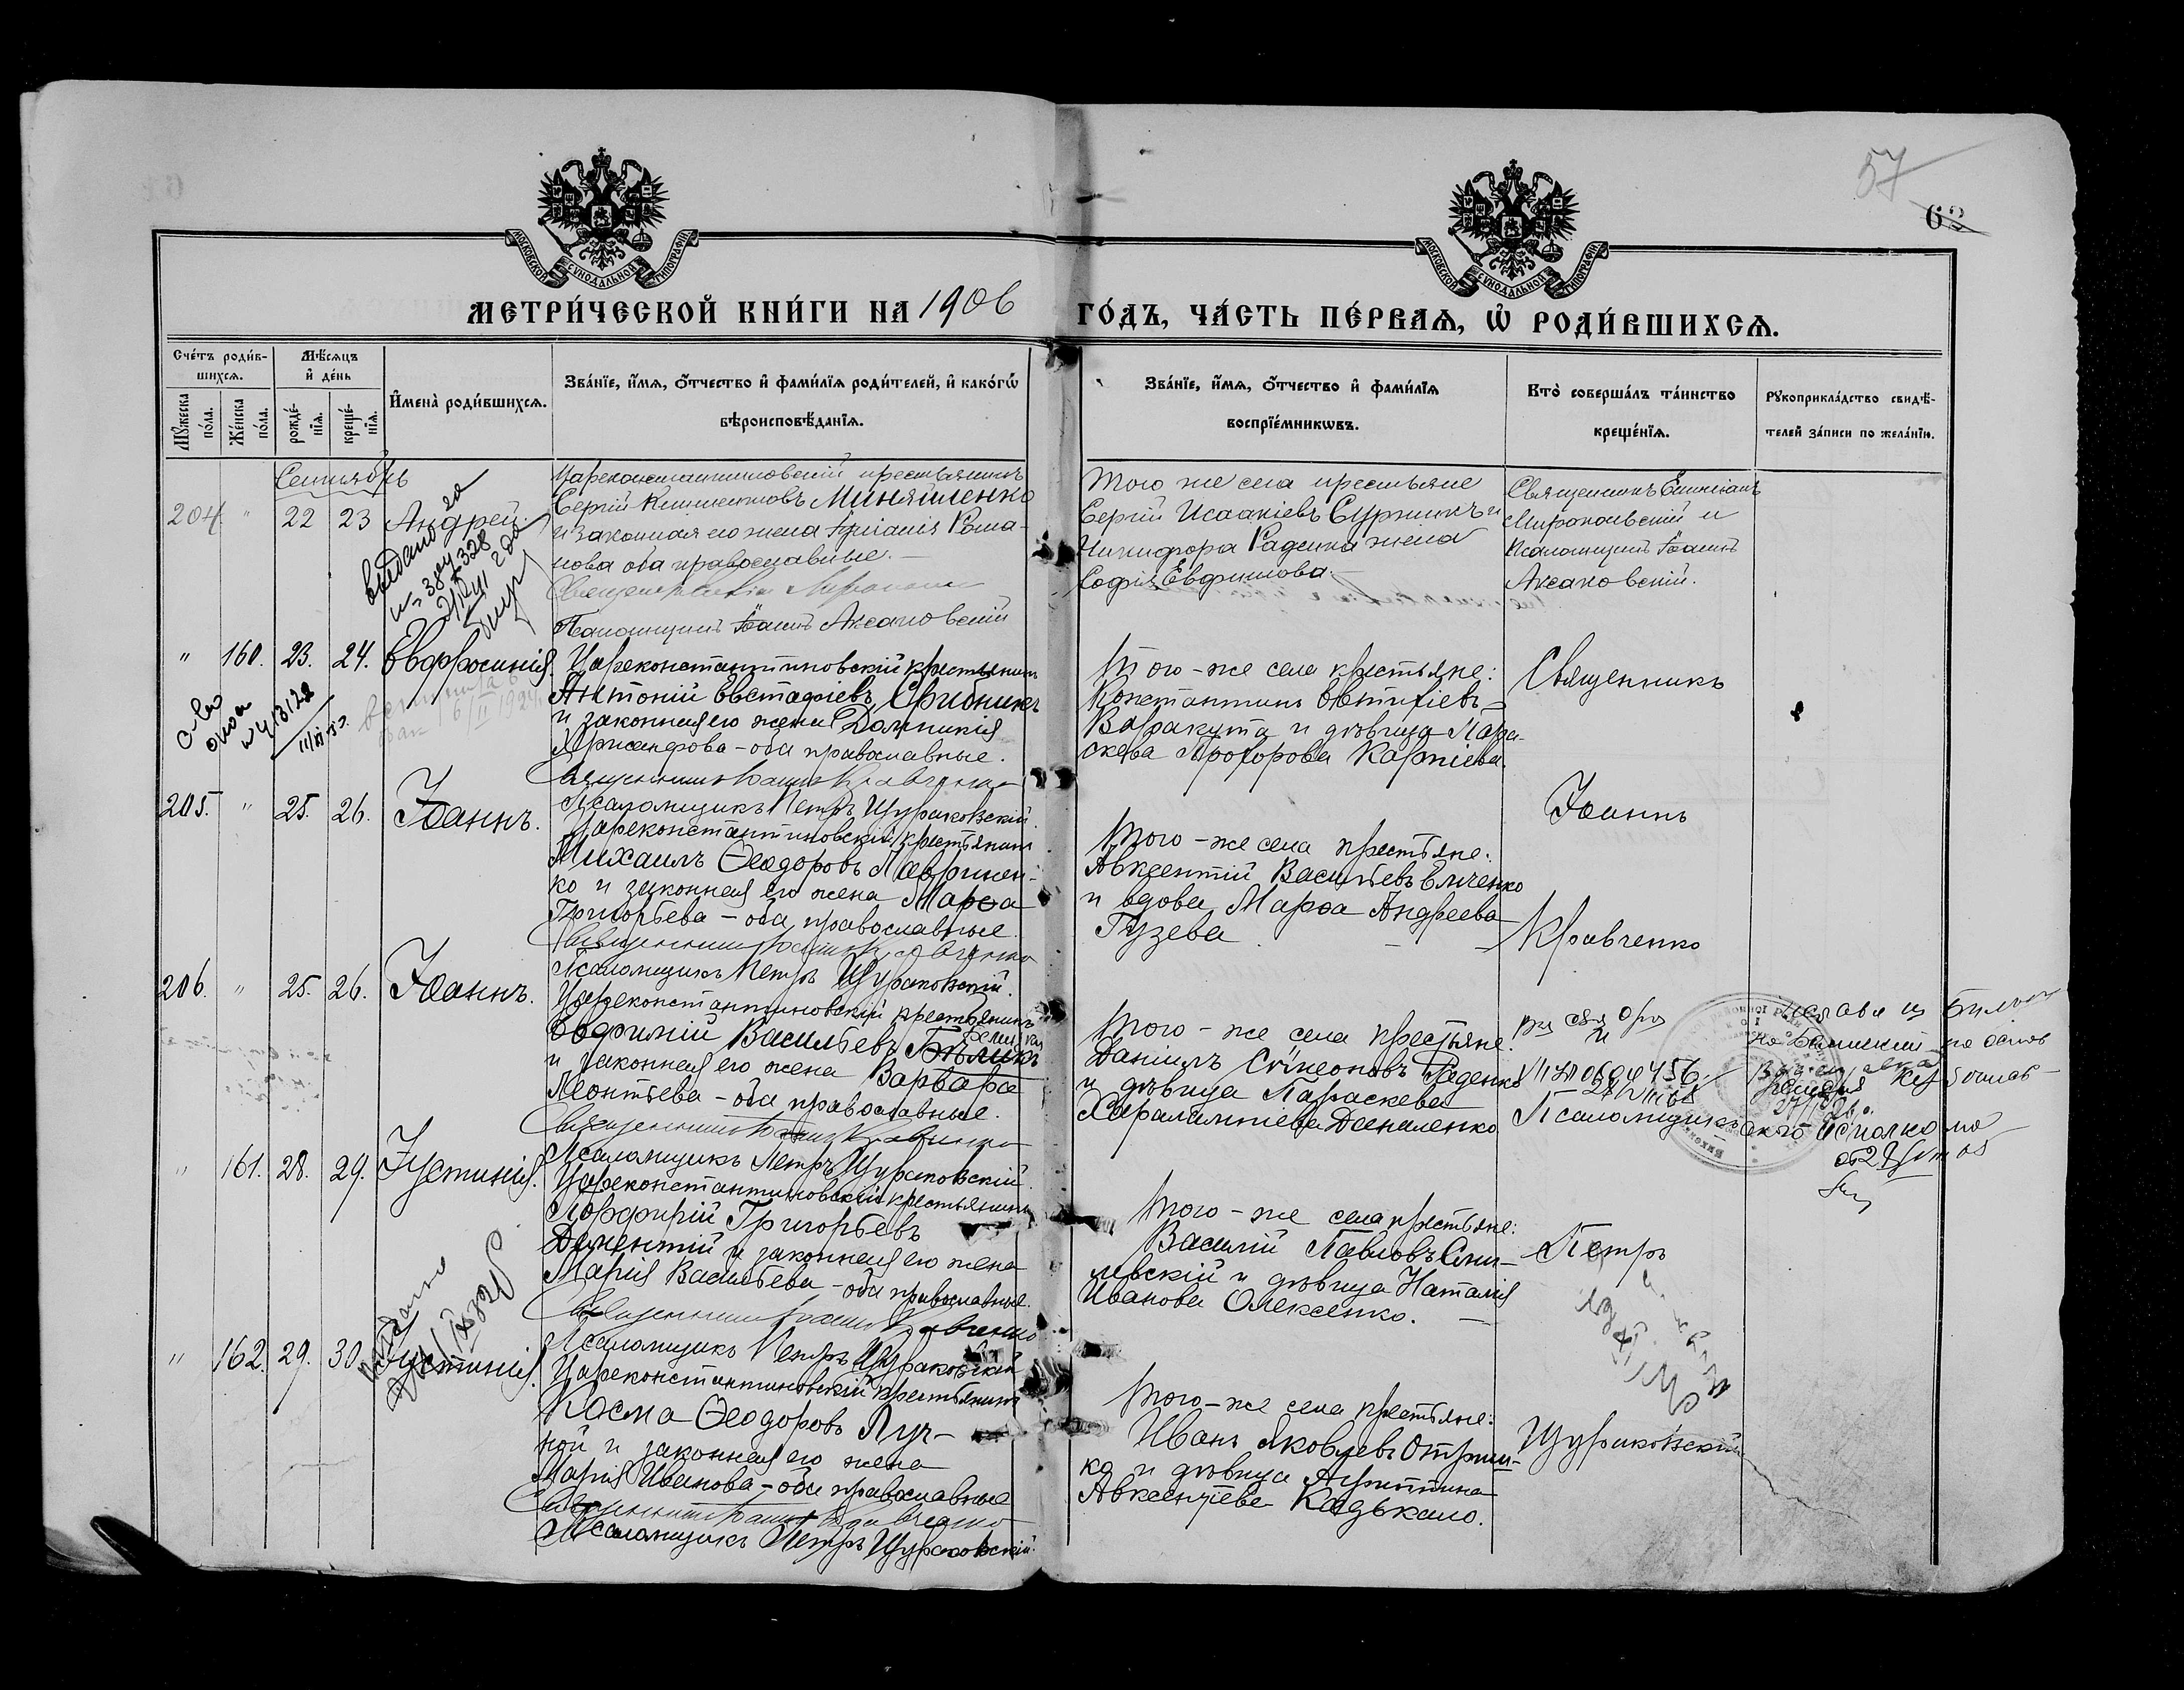 57
63
МОСКОВСКОЙ СѴНОДАЛЬНОЙ ТИПОГРАФІИ
МОСКОВСКОЙ СѴНОДАЛЬНОЙ ТИПОГРАФІИ
МЕТРИ́ЧЕСКОЙ КНИ́ГИ НА 1906 ГО́ДЪ, ЧА́СТЬ ПЕ́РВАѦ, Ѡ҆ РОДИ́ВШИХСѦ.
Сче́тъ роди́в-
шихсѧ.
Мѣ́сѧцъ
и҆ де́нь
Мꙋ́жеска
по́ла.
Же́нска
по́ла.
рожде́-
нїѧ.
креще́-
нїѧ.
И҆мена̀ роди́вшихсѧ.
Зва́нїе, и҆́мѧ, ѻ҆́тчество и҆ фами́лїѧ роди́телей, и҆ како́гѡ
вѣроисповѣ́данїѧ.
Зва́нїе, и҆́мѧ, ѻ҆́тчество и҆ фами́лїѧ
воспрїе́мникѡвъ.
Кто̀ соверша́лъ та́инство
креще́нїѧ.
Рꙋкоприкла́дство свидѣ́-
телей за́писи по жела́нїю.
Сентябрь
204 " 22 23 Андрей
Цареконстантиновскій крестьянинъ
Сергій Климентовъ Миняйленко
и законная его жена Іуліанія Рома-
нова оба православные.
Псаломщикъ Іоаннъ Аксановскій
Того же села крестьяне
Сергій Исаакіевъ Сурникъ и
Никифора Раденка жена
Софія Евфимова.
Священникъ
и
Псаломщикъ Іоаннъ
Аксановскій.
выдано
" 160. 23. 24. Евфросинія.
Цареконстантиновскій крестьянинъ
Антоній Евстафіевъ Сридникъ
и законная его жена Домникія
оба православные.
Псаломщикъ Петръ Щураковскій.
Того-же села крестьяне:
Константинъ Евтихіевъ
Варакута и дѣвица Пара-
скева Прохорова Карпіева.
Священникъ
205. " 25. 26. Іоаннъ.
Цареконстантиновскій крестьянинъ
Михаилъ Ѳеодоровъ Лавринен-
ко и законная его жена Марѳа
Григорьева - оба православные.
Псаломщикъ Петръ Щураковскій.
Того-же села крестьяне:
Авксентій Васильевъ Ельченко
и вдова Марѳа Андреева
Гузева
Іоаннъ
Кравченко
206. " 25. 26. Іоаннъ.
Цареконстантиновскій крестьянинъ
Евфимій Васильевъ Бѣликъ
и законная его жена Варвара
Леонтьева - оба православные.
Псаломщикъ Петръ Щураковскій.
Того-же села крестьяне:
Даніилъ Сѵмеоновъ Реденко
и дѣвица Параскева
Харалампіева Даниленко
и
Псаломщикъ
" 161. 28. 29. Іустинія.
Цареконстантиновскій крестьянинъ
Порфирій Григорьевъ
Дементій и законная его жена
Марія Васильева - оба православные.
Псаломщикъ Петръ Щураковскій
Того-же села крестьяне:
Василій Павловъ Сми-
левскій и дѣвица Наталія
Иванова Олексенко.
Петръ
" 162. 29. 30. Іустинія.
Цареконстантиновскій крестьянинъ
Косма Ѳеодоровъ Луч-
ной и законная его жена
Марія Иванова - оба православные
Псаломщикъ Петръ Щураковскій.
Того-же села крестьяне:
Иванъ Яковлевъ Отриш-
ко и дѣвица Агриппина
Авксентіева Кадькало.
Щураковскій